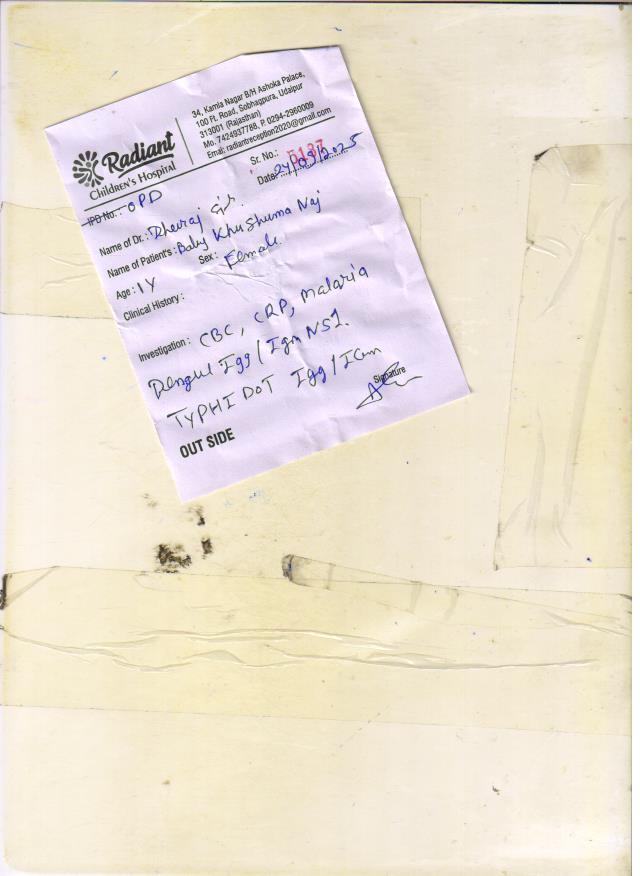 Radiant
Children's Hospital
34, Kamla Nagar B/H Ashoka Palace,
100 Ft. Road, Sobhagpura, Udaipur
313001 (Rajasthan)
Mo. 7424937788, P. 0294-2960009
Email: radiantreception2020@gmail.com
Sr. No.: 5137
IPD No.: OPD
Date: 24/09/2025
Name of Dr.: Dheiraj
Name of Patient's: Baby Khushuma Naj
Age: 1Y Sex: Female
Clinical History:
Investigation: CBC, CRP, Malaria
Dengue Igg/Igm NS1.
TYPHI DOT Igg/IGm
Signature
OUT SIDE